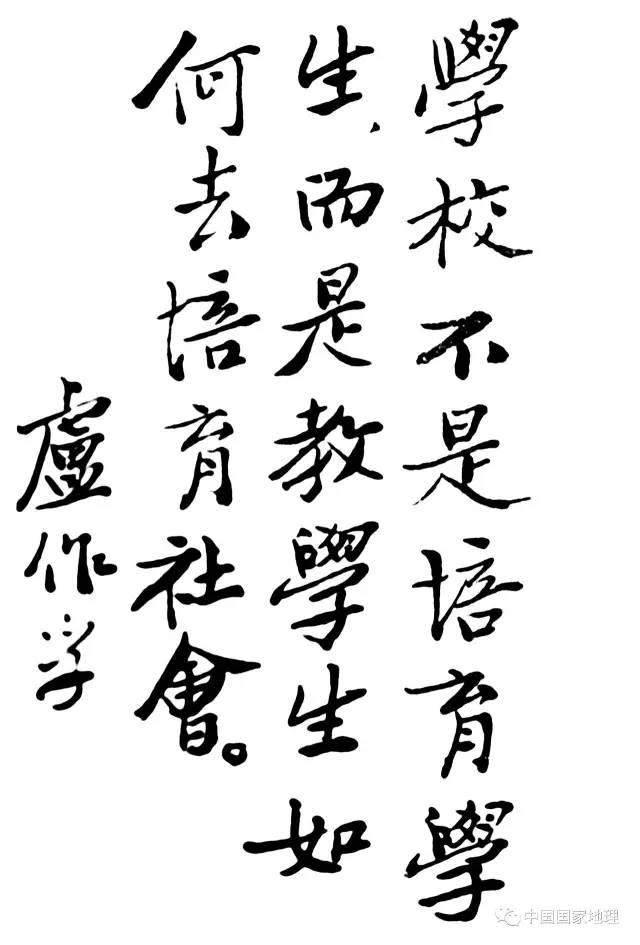 學校不是培育學
生、而是教學生如
何去培育社會。
盧作孚
中国国家地理